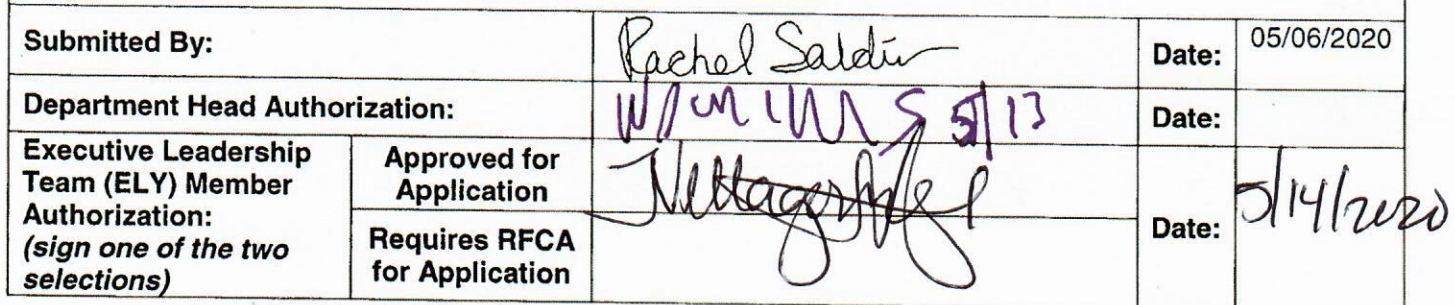 Submitted By: Rachel Saldin Date: 05/06/2020
Department Head Authorization: 5/13 Date:
Executive Leadership Team (ELY) Member Authorization: (sign one of the two selections)
Approved for Application
Requires RFCA for Application
Date: 5/14/2020